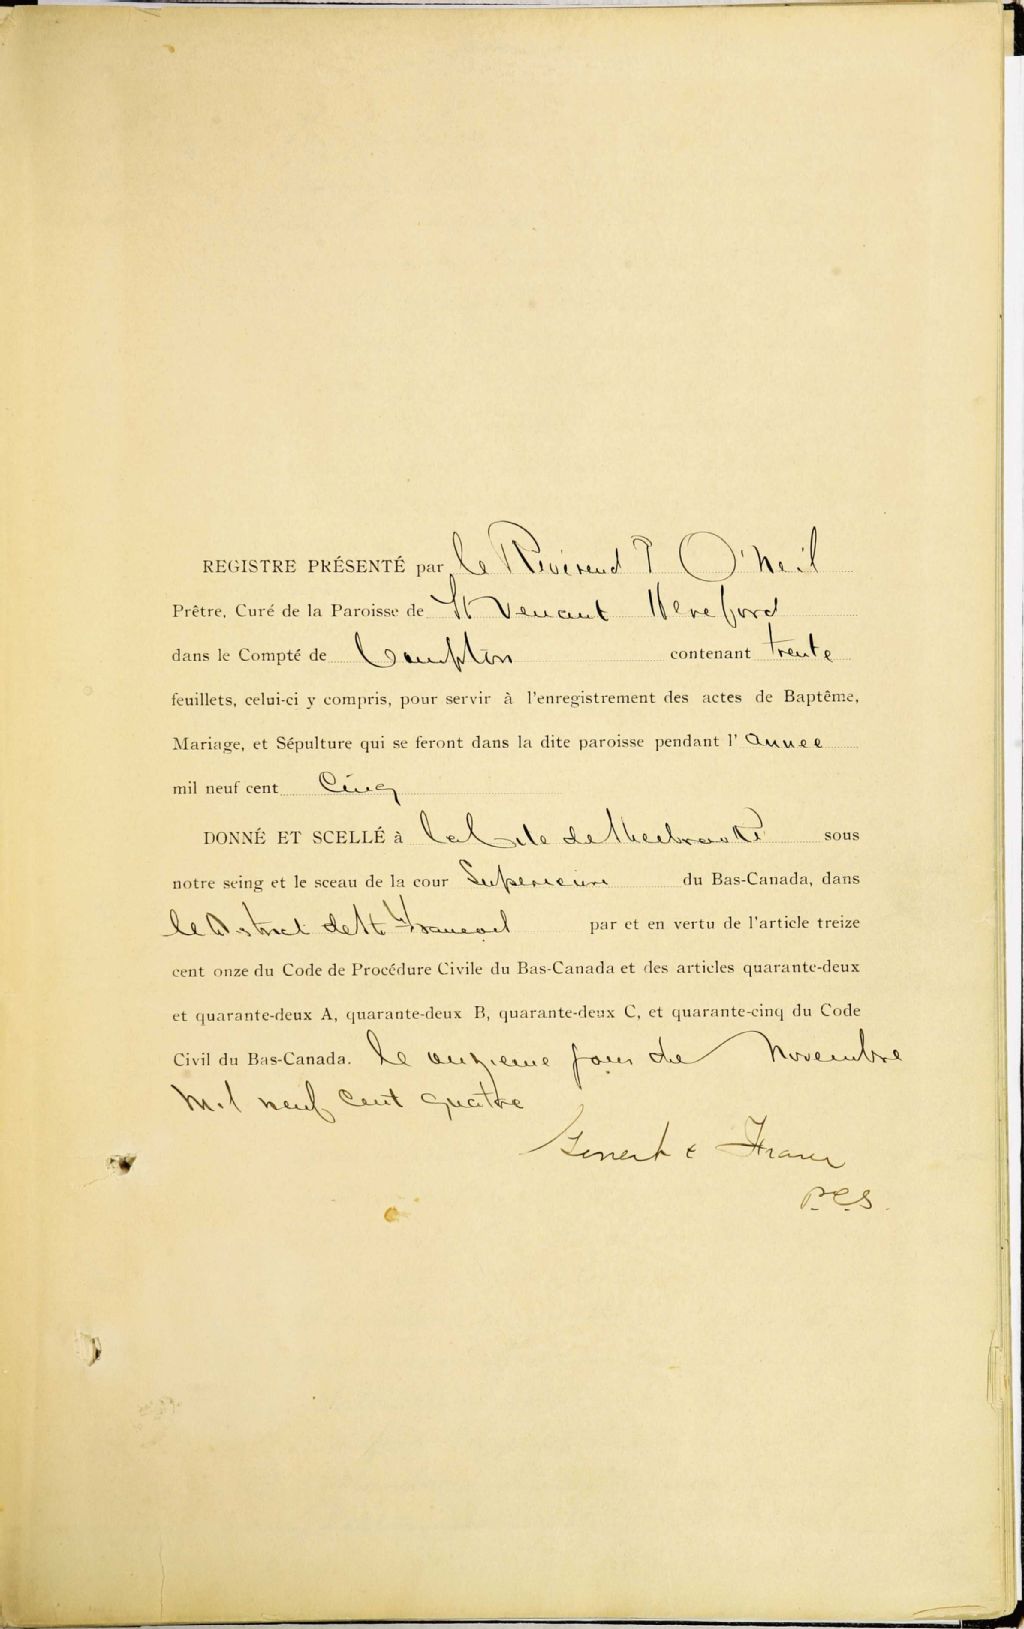 REGISTRE PRÉSENTÉ par le Révérend P O'Neil
Prêtre, Curé de la Paroisse de St Venant Hereford
dans le Compté de Compton contenant trente
feuillets, celui-ci y compris, pour servir à l'enregistrement des actes de Baptême,
Mariage, et Sépulture qui se feront dans la dite paroisse pendant l' année
mil neuf cent Cinq
DONNÉ ET SCELLÉ à la Cité de Sherbrooke sous
notre seing et le sceau de la cour Supérieure du Bas-Canada, dans
le District de St François par et en vertu de l'article treize
cent onze du Code de Procédure Civile du Bas-Canada et des articles quarante-deux
et quarante-deux A, quarante-deux B, quarante-deux C, et quarante-cinq du Code
Civil du Bas-Canada. le onzieme jour de Novembre
Mil neuf cent quatre
&
P.C.S.